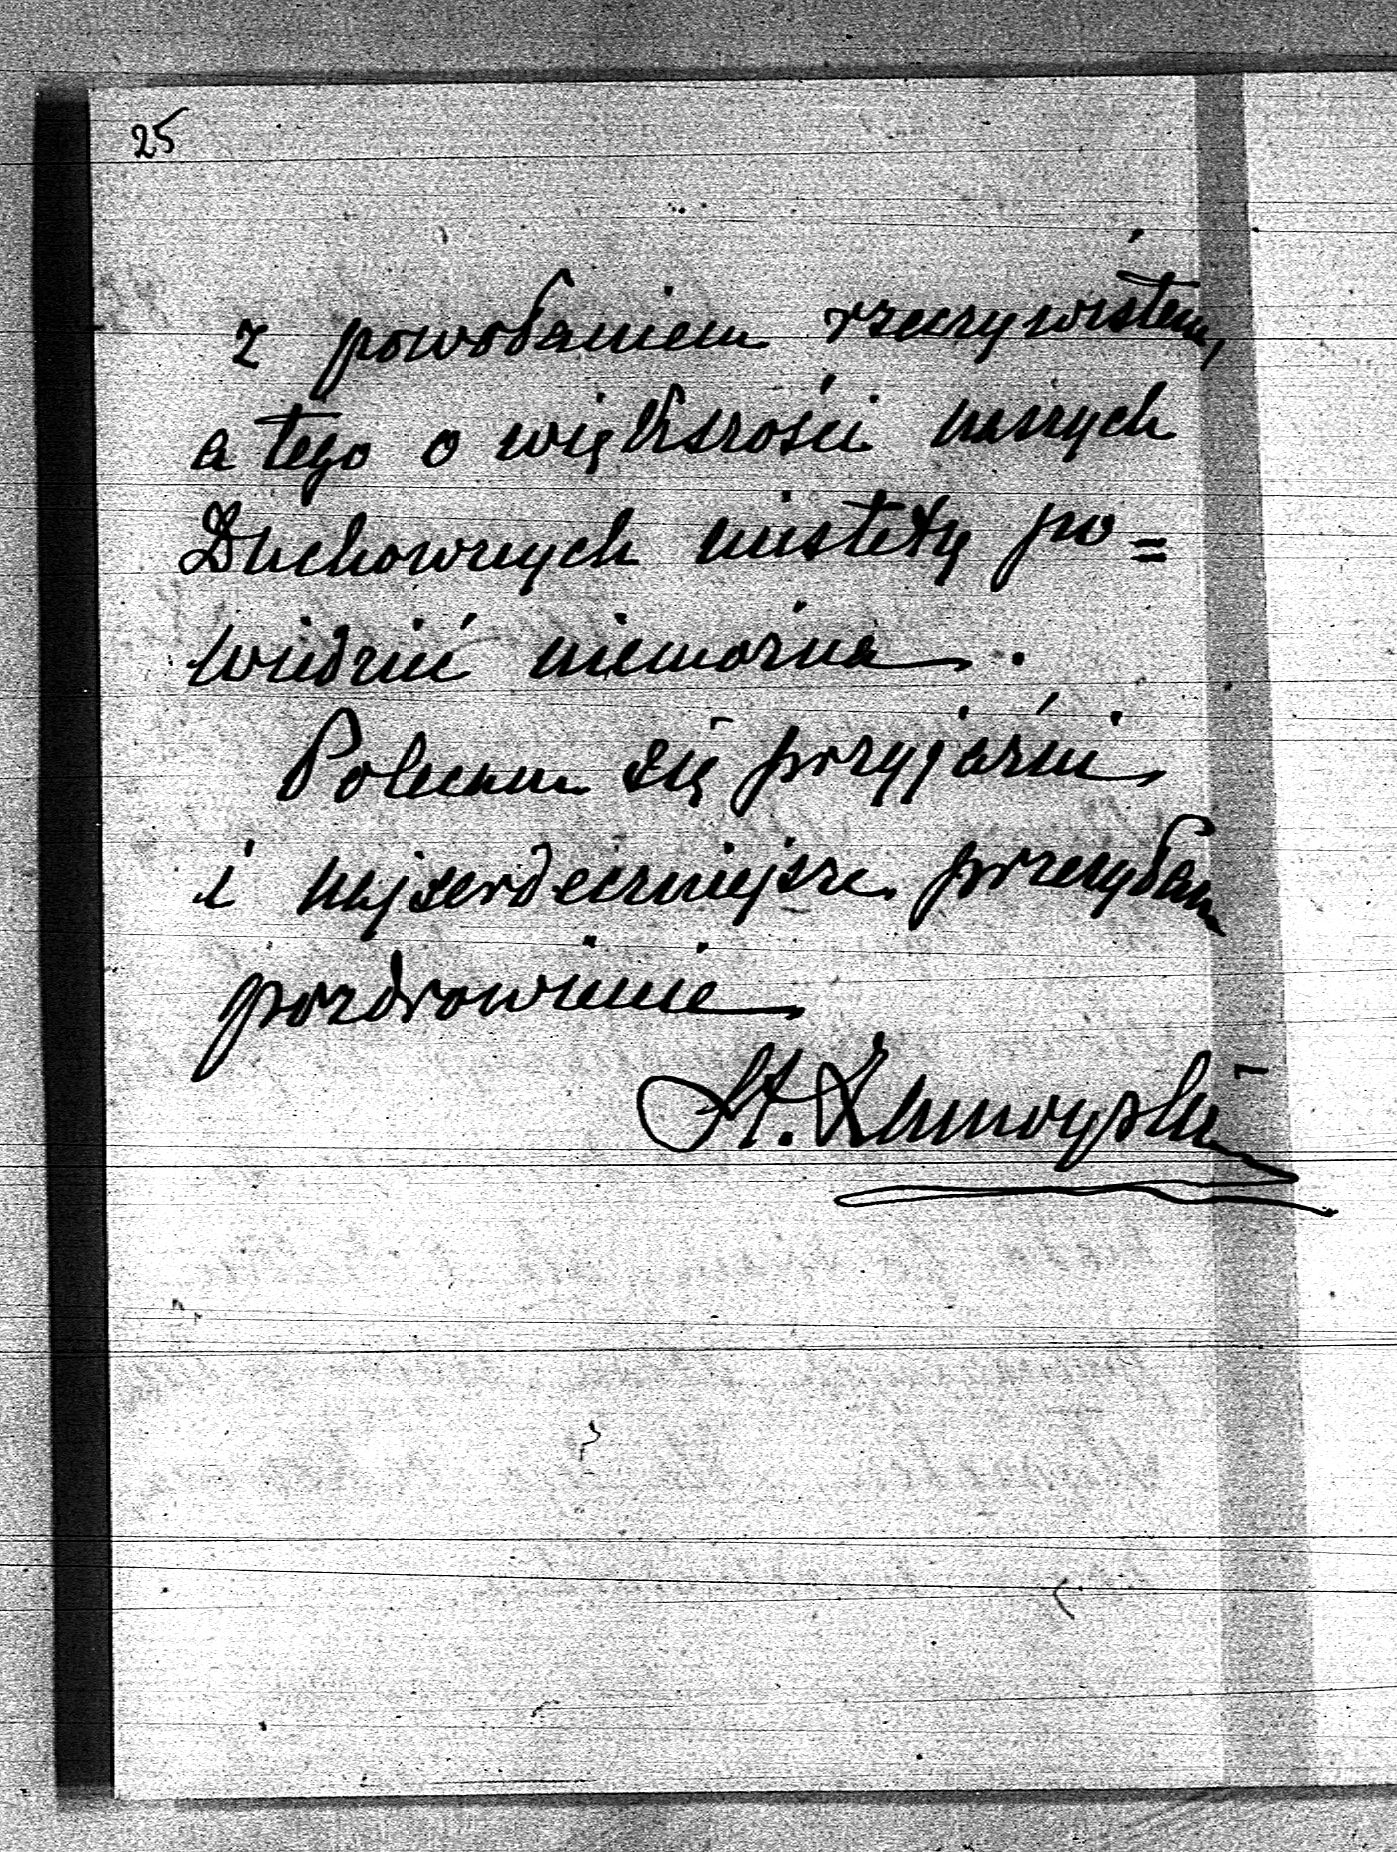 25
z powołaniem rzeczywistem,
a tego o większości naszych
Duchownych niestety po=
wiedzieć niemożna.
Polecam się przyjaźni
i najserdeczniejsze przesyłam
pozdrowienie
St. Zamoyski